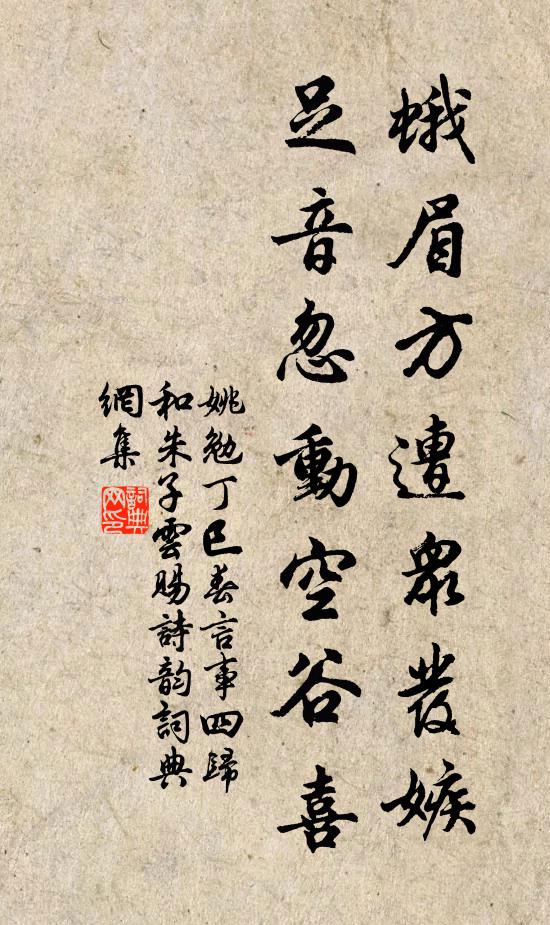 蛾眉方遭衆發嫉
足音忽動空谷喜
姚勉丁巳春言事四歸
和朱子雲賜詩韵詞典
網集
詞典
网印